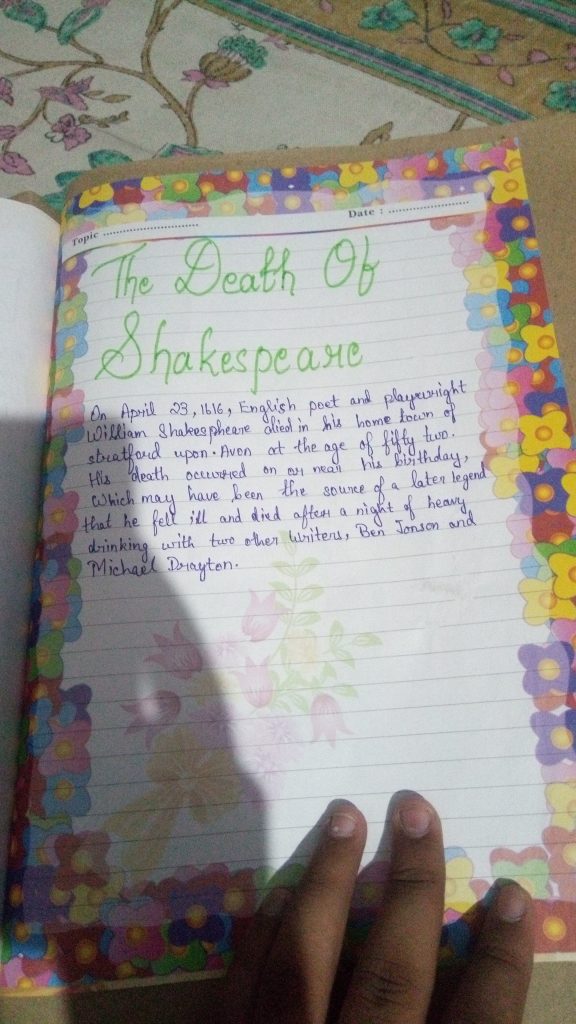 Topic ............................
Date : ..........................
The Death Of
Shakespeare
On April 23, 1616, English poet and playwright
William Shakespheare died in his home town of
stratford upon. Avon at the age of fifty two.
His death occurred on or near his birthday,
which may have been the source of a later legend
that he fell ill and died after a night of heavy
drinking with two other writers, Ben Jonson and
Michael Drayton.